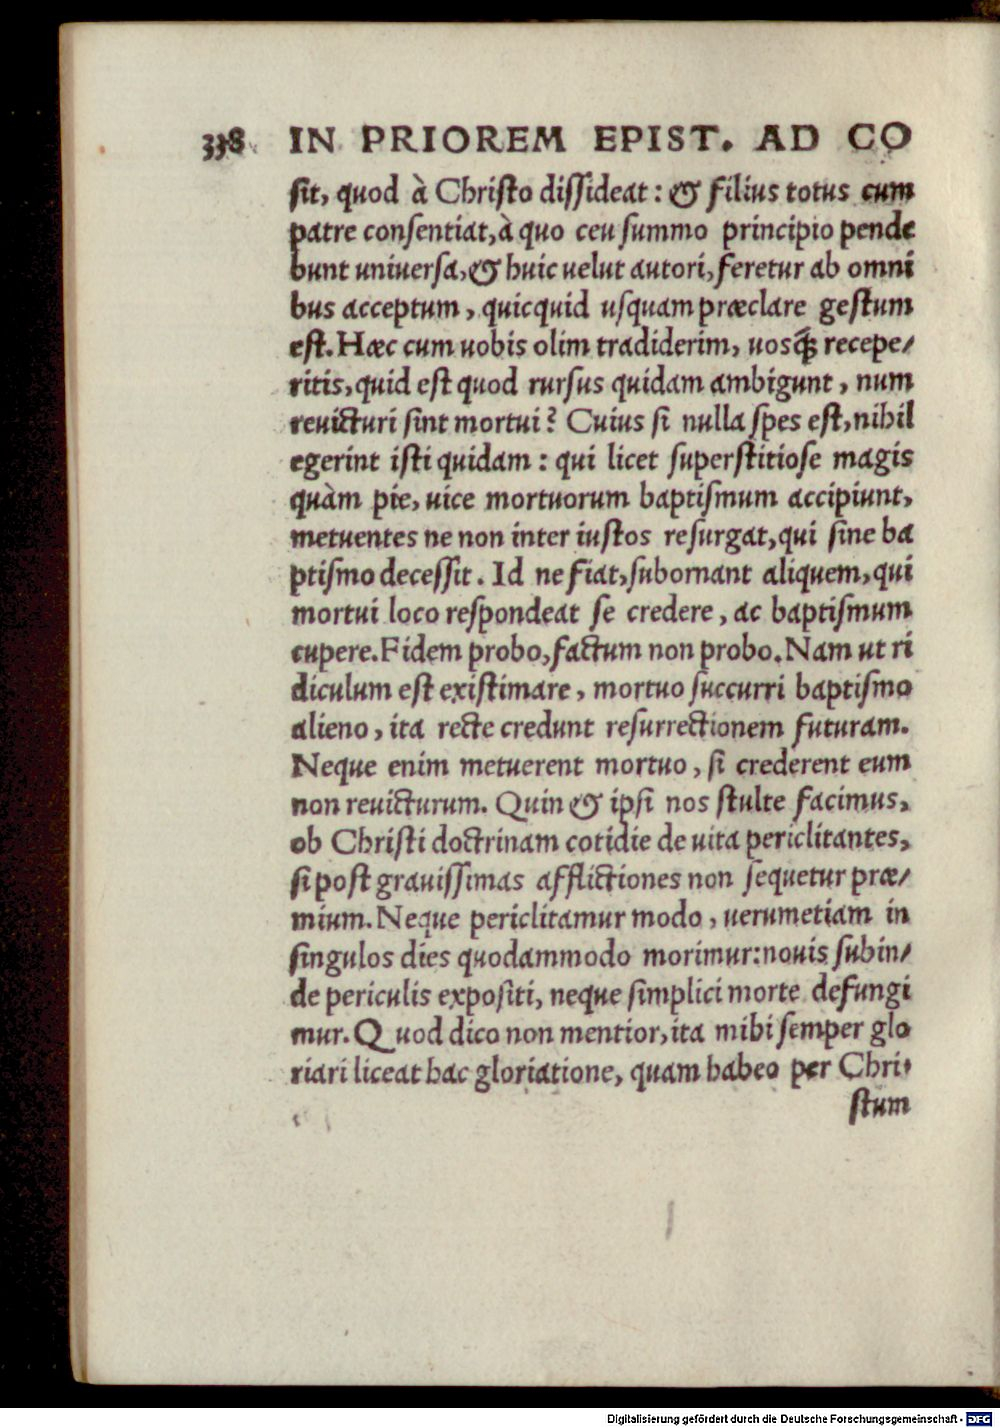 338 IN PRIOREM EPIST. AD CO
sit, quod à Christo dissideat: & filius totus cum
patre consentiat, à quo ceu summo principio pende
bunt uniuersa, & huic uelut autori, feretur ab omni
bus acceptum, quicquid usquam præclare gestum
est. Hæc cum uobis olim tradiderim, uosꝗ recepe/
ritis, quid est quod rursus quidam ambigunt, num
reuicturi sint mortui? Cuius si nulla spes est, nihil
egerint isti quidam: qui licet superstitiose magis
quàm pie, uice mortuorum baptismum accipiunt,
metuentes ne non inter iustos resurgat, qui sine ba
ptismo decessit. Id ne fiat, subornant aliquem, qui
mortui loco respondeat se credere, ac baptismum
cupere. Fidem probo, factum non probo. Nam ut ri
diculum est existimare, mortuo succurri baptismo
alieno, ita recte credunt resurrectionem futuram.
Neque enim metuerent mortuo, si crederent eum
non reuicturum. Quin & ipsi nos stulte facimus,
ob Christi doctrinam cotidie de uita periclitantes,
si post grauissimas afflictiones non sequetur præ/
mium. Neque periclitamur modo, uerumetiam in
singulos dies quodammodo morimur: nouis subin/
de periculis expositi, neque simplici morte defungi
mur. Quod dico non mentior, ita mihi semper glo
riari liceat hac gloriatione, quam habeo per Chri/
stum
Digitalisierung gefördert durch die Deutsche Forschungsgemeinschaft - DFG